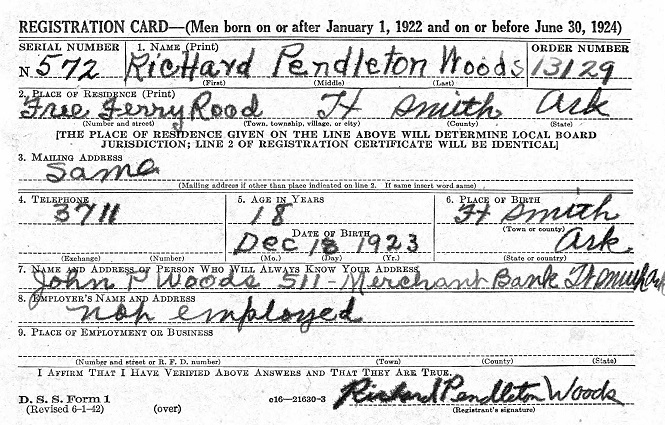 REGISTRATION CARD—(Men born on or after January 1, 1922 and on or before June 30, 1924)
SERIAL NUMBER 1. NAME (Print) ORDER NUMBER
N 572 Richard Pendleton Woods 13129
(First) (Middle) (Last)
2. PLACE OF RESIDENCE (Print)
Free Ferry Rood Ft Smith Ark
(Number and street) (Town, township, village, or city) (County) (State)
[THE PLACE OF RESIDENCE GIVEN ON THE LINE ABOVE WILL DETERMINE LOCAL BOARD
JURISDICTION; LINE 2 OF REGISTRATION CERTIFICATE WILL BE IDENTICAL]
3. MAILING ADDRESS
Same
(Mailing address if other than place indicated on line 2. If same insert word same)
4. TELEPHONE 5. AGE IN YEARS 6. PLACE OF BIRTH
3711 18 Ft Smith
(Town or county)
DATE OF BIRTH
Dec 18 1923 Ark.
(Exchange) (Number) (Mo.) (Day) (Yr.) (State or country)
7. NAME AND ADDRESS OF PERSON WHO WILL ALWAYS KNOW YOUR ADDRESS
John P Woods 511 - Merchant Bank Ft Smith Ark
8. EMPLOYER'S NAME AND ADDRESS
not employed
9. PLACE OF EMPLOYMENT OR BUSINESS
(Number and street or R. F. D. number) (Town) (County) (State)
I AFFIRM THAT I HAVE VERIFIED ABOVE ANSWERS AND THAT THEY ARE TRUE.
D. S. S. Form 1
(Revised 6-1-42) (over) c16—21630-3 Richard Pendleton Woods
(Registrant's signature)